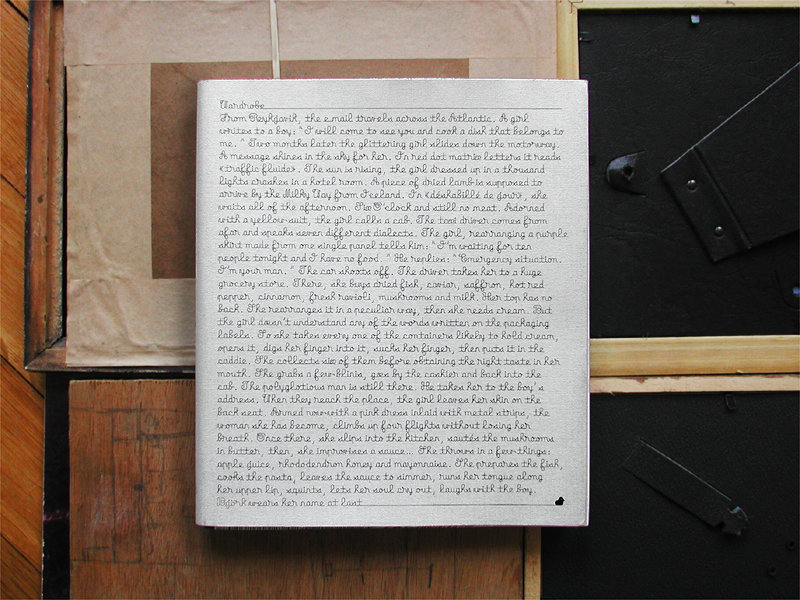 Wardrobe
From Reykjavik, the email travels across the Atlantic. A girl
writes to a boy: "I will come to see you and cook a dish that belongs to
me." Two months later the glittering girl slides down the motorway.
A message shines in the sky for her. In red dot matrix letters it reads
«traffic fluide». The sun is rising, the girl dressed up in a thousand
lights crashes in a hotel room. A piece of dried lamb is supposed to
arrive by the Milky Way from Iceland. In «déshabillé de jour», she
waits all of the afternoon. Five O'clock and still no meat. Adorned
with a yellow suit, the girl calls a cab. The taxi driver comes from
afar and speaks seven different dialects. The girl, rearranging a purple
skirt made from one single panel tells him: "I'm waiting for ten
people tonight and I have no food." He replies: "Emergency situation.
I'm your man." The car shoots off. The driver takes her to a huge
grocery store. There, she buys dried fish, caviar, saffron, hot red
pepper, cinnamon, fresh ravioli, mushrooms and milk. Her top has no
back. She rearranges it in a peculiar way, then she needs cream. But
the girl doesn't understand any of the words written on the packaging
labels. So she takes every one of the containers likely to hold cream,
opens it, digs her finger into it, sucks her finger, then puts it in the
caddie. She collects six of them before obtaining the right taste in her
mouth. She grabs a few blinis, goes by the cashier and back into the
cab. The polyglotious man is still there. He takes her to the boy's
address. When they reach the place, the girl leaves her skin on the
back seat. Armed now with a pink dress inlaid with metal strips, the
woman she has become, climbs up four flights without losing her
breath. Once there, she slips into the kitchen, sautés the mushrooms
in butter, then, she improvises a sauce... She throws in a few things:
apple juice, rhododendron honey and mayonnaise. She prepares the fish,
cooks the pasta, leaves the sauce to simmer, runs her tongue along
her upper lip, squints, lets her soul cry out, laughs with the boy.
Björk wears her name at last